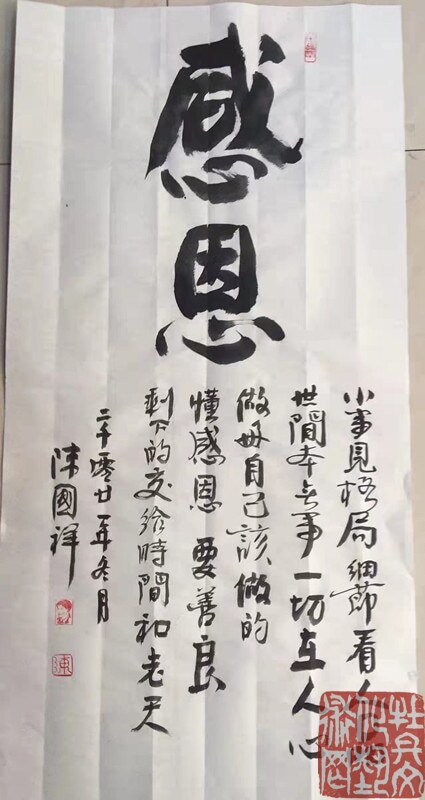 感恩
小事見格局 细節看人品
世間本无事 一切在人心
做好自己該做的
懂感恩 要善良
剩下的交給時間和老天
二千零廿一年冬月
陳國祥